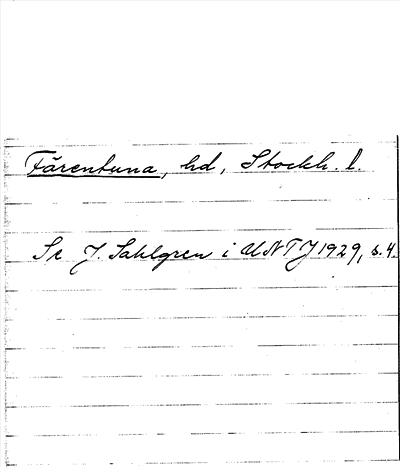 Färentuna, hd, Stockh. l.
Se J. Sahlgren i UNTJ 1929, s. 4.